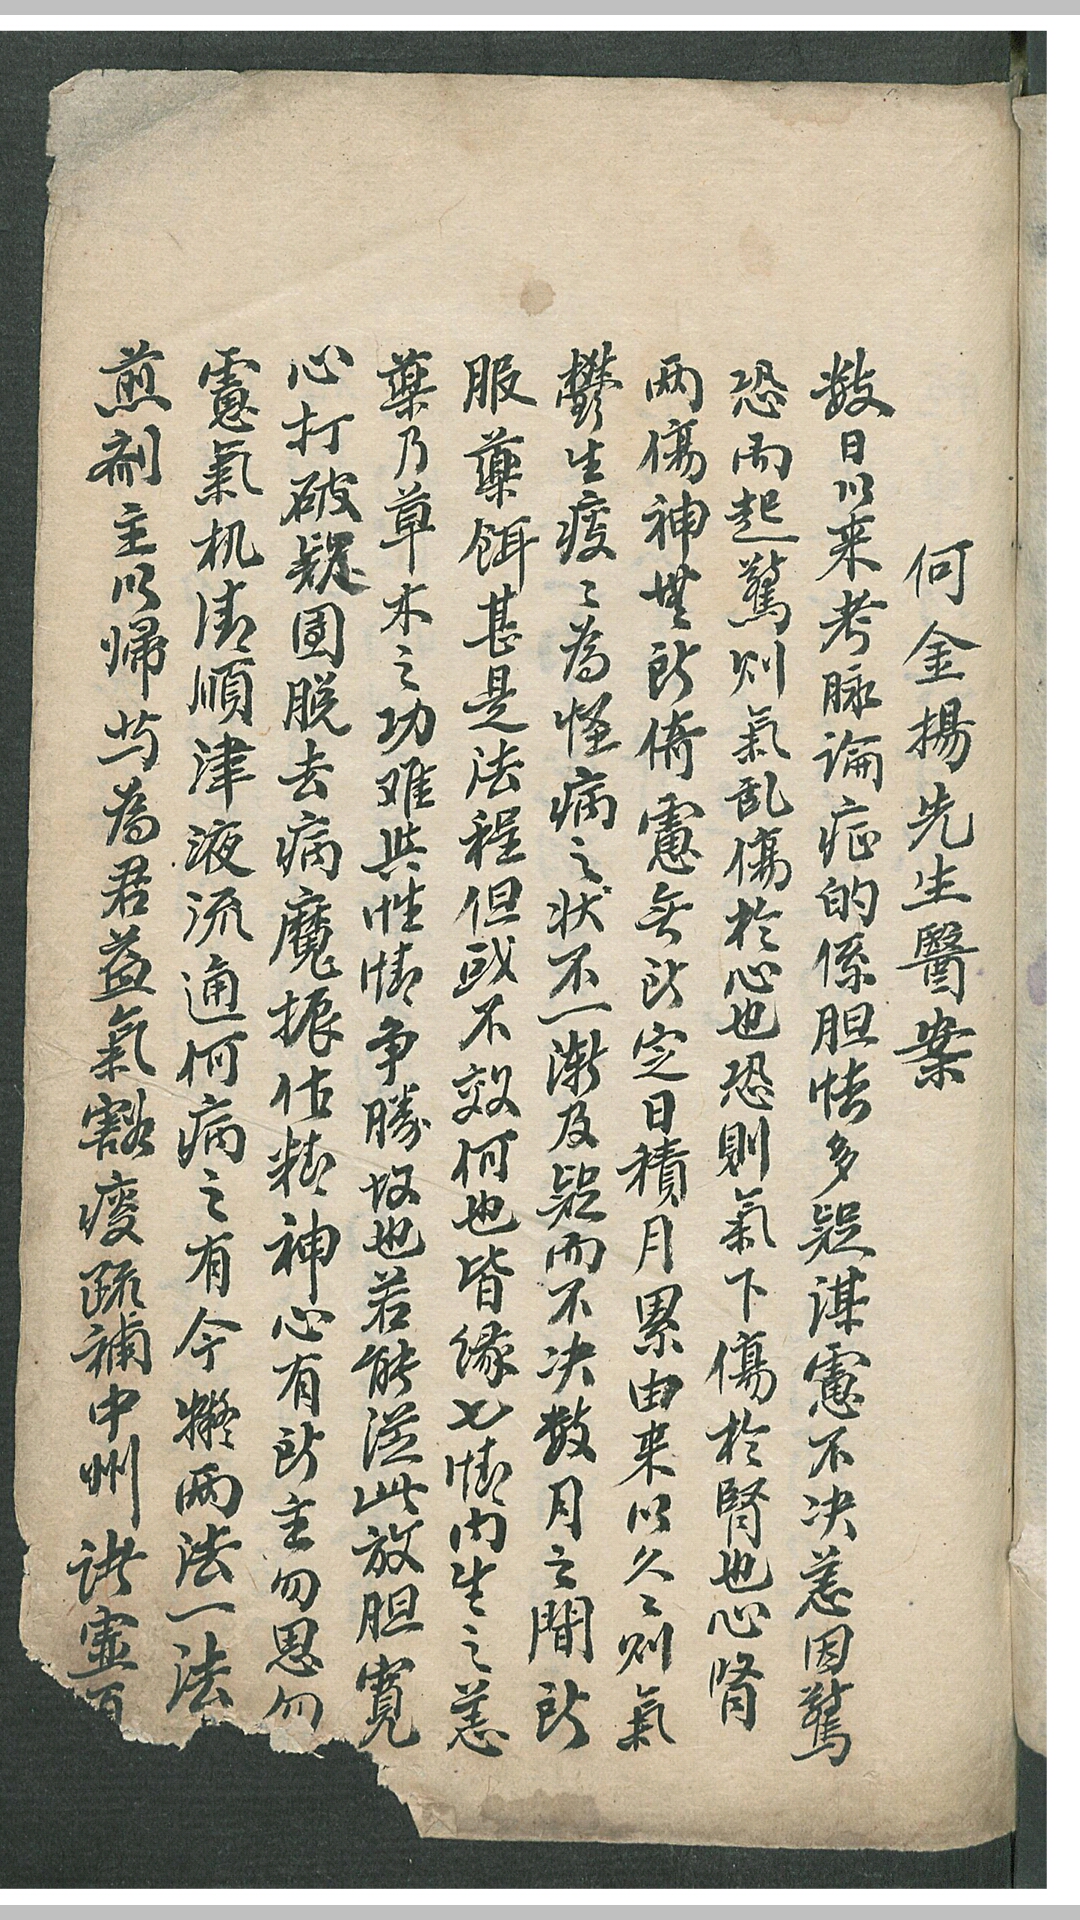 何金揚先生醫案
数日以来考脉論症的係胆怯多疑謀慮不决恙因驚
恐而起驚则氣乱傷於心也恐則氣下傷於腎也心腎
两傷神無所倚慮無所定日積月累由来以久々则氣
鬱生痰々為怪病之状不一漸及疑而不决数月之間所
服藥餌甚是法程但或不效何也皆缘七情内生之恙
藥乃草木之功难與性情争勝故也若能從此放胆寬
心打破疑团脱去病魔振作精神心有所主勿思勿
慮氣机清順津液流通何病之有今擬两法一法
煎剤主以帰芍為君益氣豁痰疏補中州